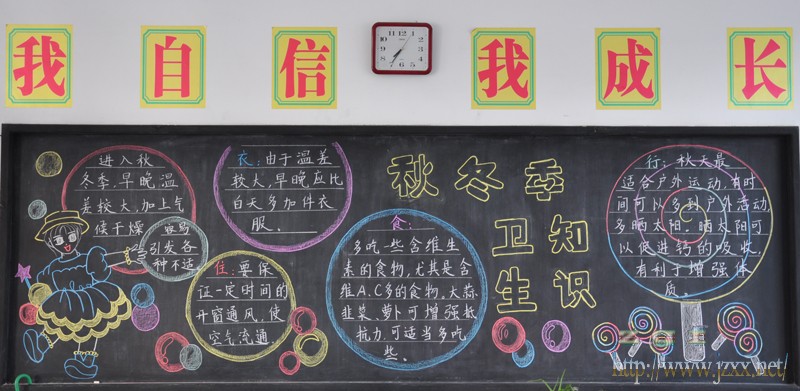 我自信我成长
进入秋
冬季,早晚,温
差较大,加上气
候干燥
容易
引发各
种不适
衣:由于温差
较大,早晚应比
白天多加件衣
服。
住:要保
证一定时间的
开窗通风,使
空气流通.
食:
多吃一些含维生
素的食物,尤其是含
维A.C多的食物,大蒜、
韭菜、萝卜可增强抵
抗力,可适当多吃
些。
秋冬季
卫知
生识
行:秋天最
适合户外运动,有时
间可以多到户外活动,
多晒太阳。晒太阳可
以促进钙的吸收,
有利于增强体
质。
http://www.jzxx.net/